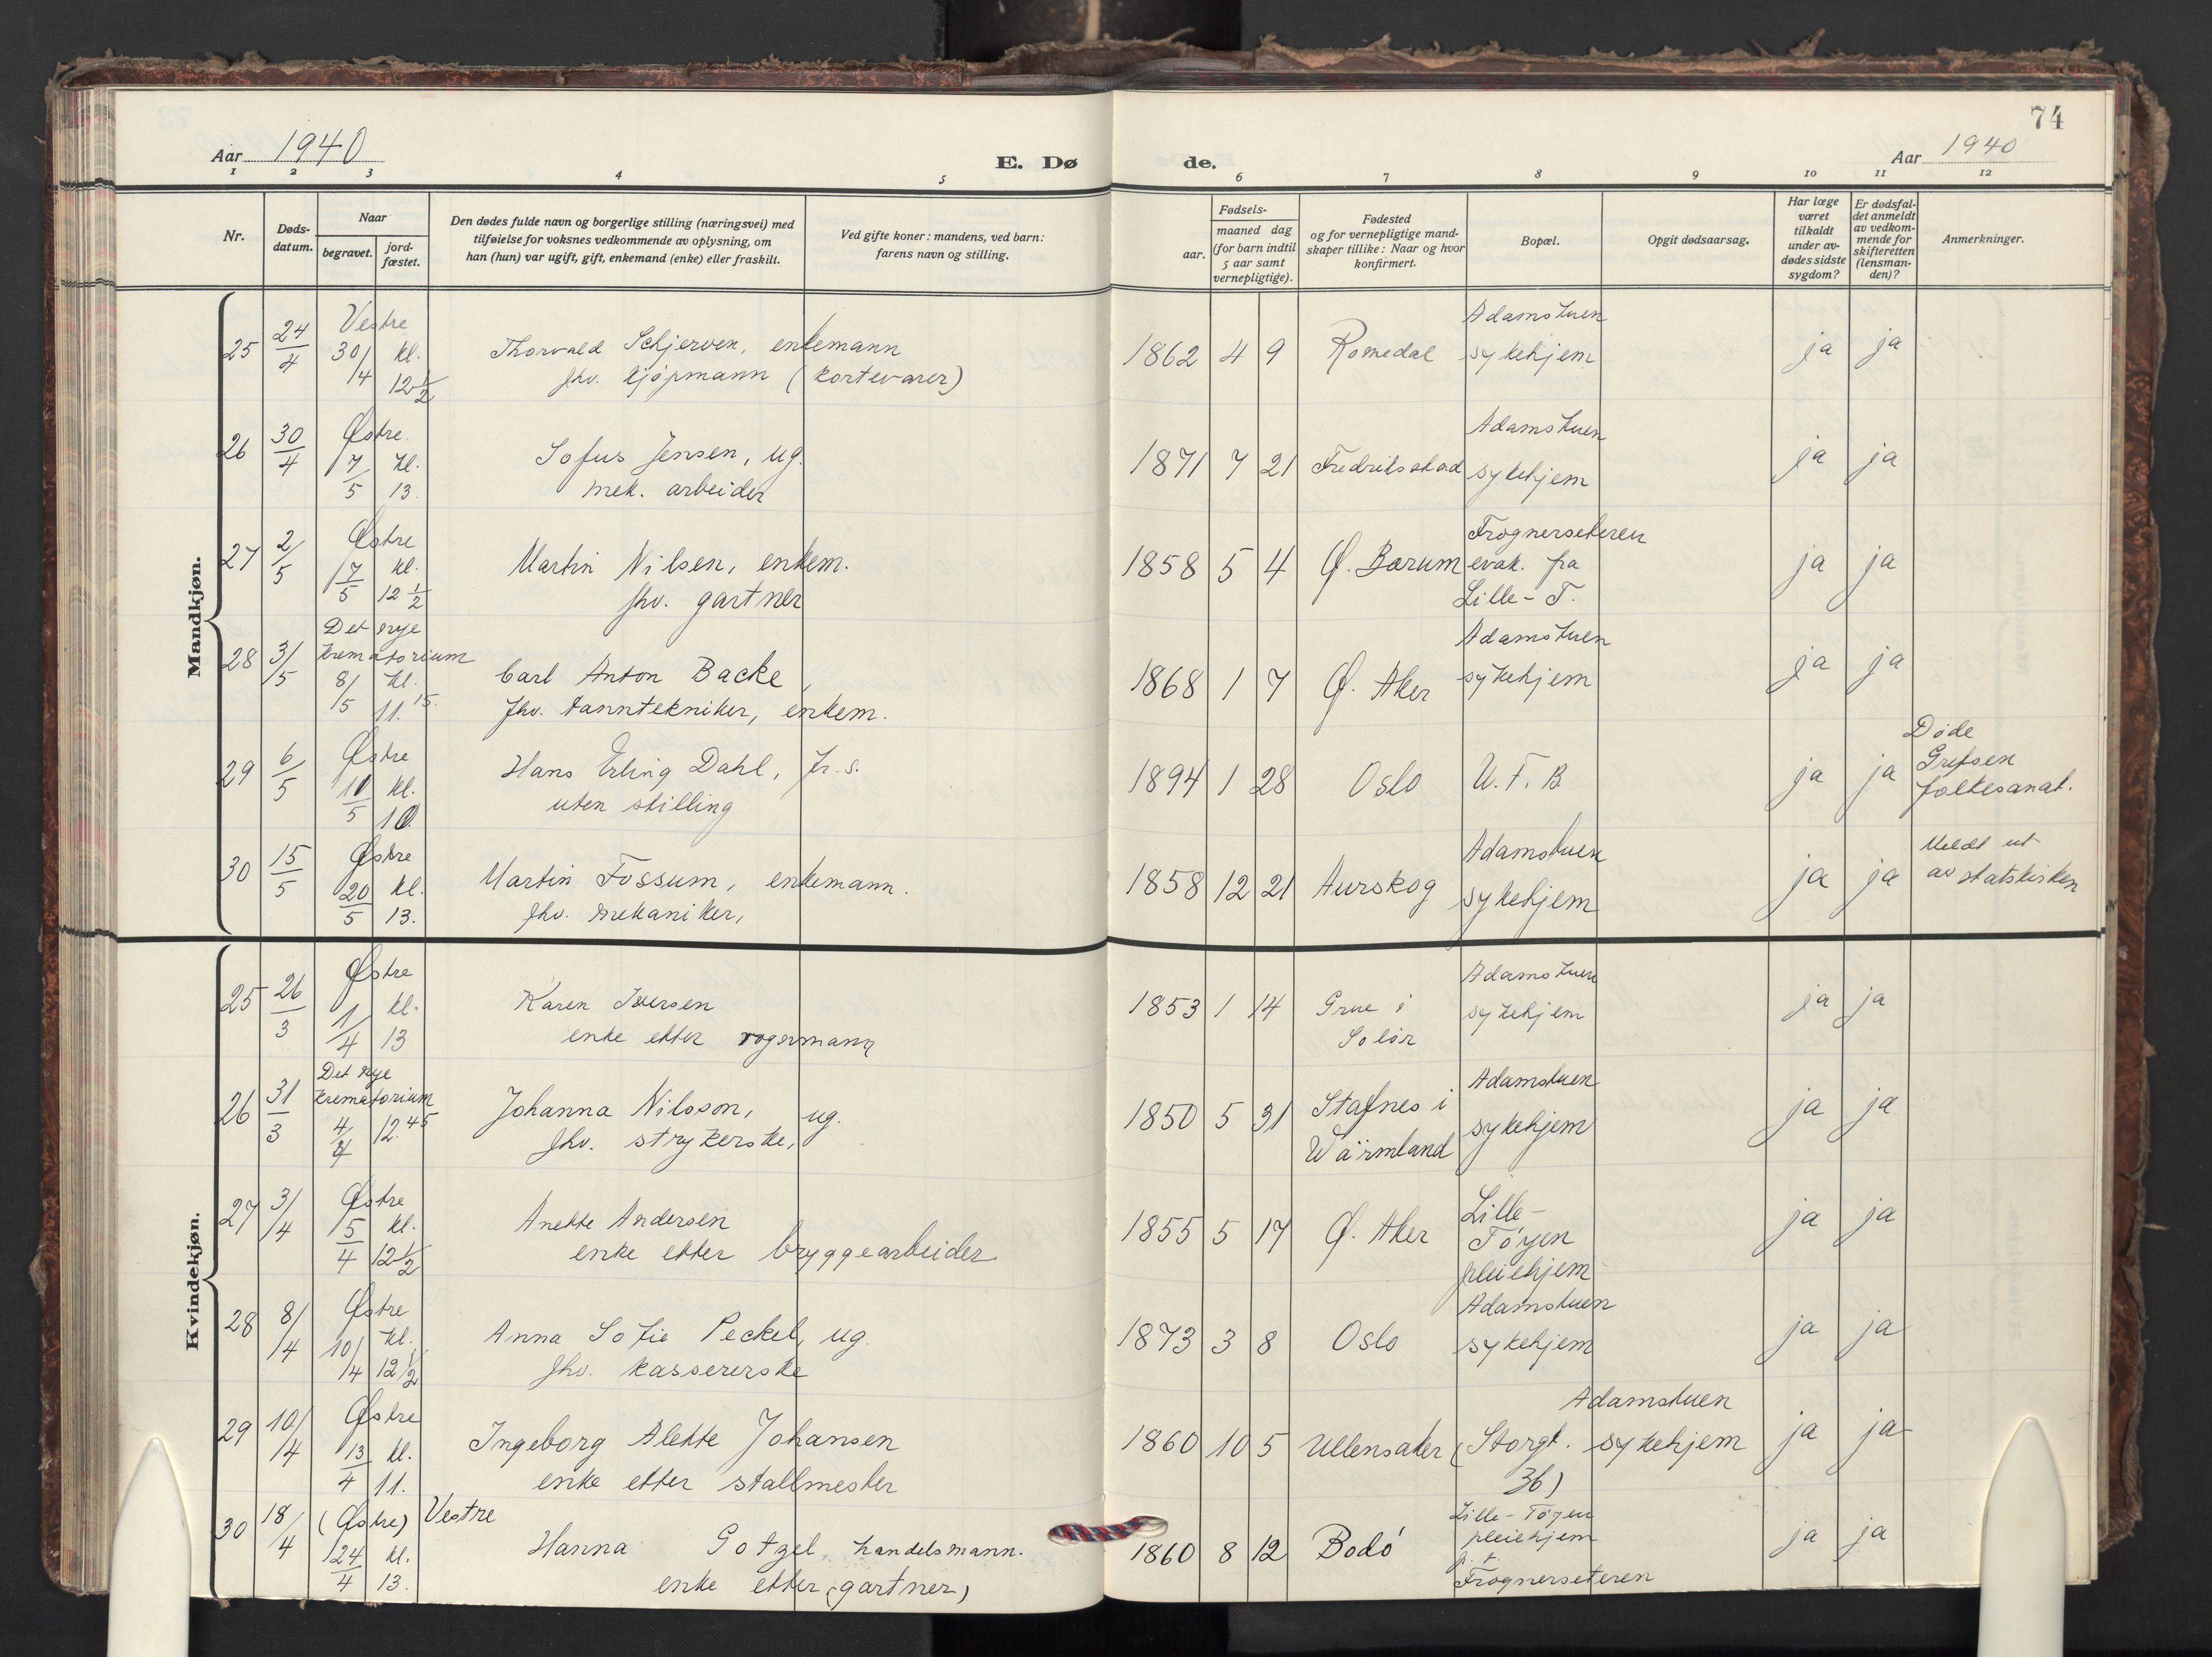 74
Aar 1940
E. Dø de.
Aar 1940
1 2 3 4 5 6 7 8 9 10 11 12
Nr.
Døds-
datum.
Naar
begravet.
jord-
fæstet.
Den dødes fulde navn og borgerlige stilling (næringsvei) med
tilføielse for voksnes vedkommende av oplysning, om
han (hun) var ugift, gift, enkemand (enke) eller fraskilt.
Ved gifte koner: mandens, ved barn:
farens navn og stilling.
Fødsels-
aar.
maaned dag
(for barn indtil
5 aar samt
vernepligtige).
Fødested
og for vernepligtige mand-
skaper tillike: Naar og hvor
konfirmert.
Bopæl.
Opgit dødsaarsag.
Har læge
været
tilkaldt
under av-
dødes sidste
sygdom?
Er dødsfal-
det anmeldt
av vedkom-
mende for
skifteretten
(lensman-
den)?
Anmerkninger.
Mandkjøn.
25 24/4 Vestre 30/4 kl. 12 1/2
Thorvald Schjerven, enkemann
fhv. kjøpmann (kortevarer)
1862 4 9 Romedal
Adamstuen
sykehjem
ja ja
26 30/4 Østre 7/5 kl. 13.
Sofus Jensen, ug.
mek. arbeider
1871 7 21 Fredriksstad
Adamstuen
sykehjem
ja ja
27 2/5 Østre 7/5 kl. 12 1/2
Martin Nilsen, enkem.
fhv. gartner
1858 5 4 Ø. Bærum
Frognerseteren
evak. fra
Lille-T.
ja ja
28 3/5 Det nye
krematorium
8/5 kl. 11.15.
Carl Anton Backe,
fhv. tanntekniker, enkem.
1868 1 7 Ø. Aker
Adamstuen
sykehjem
ja ja
29 6/5 Østre 10/5 kl. 10.
Hans Erling Dahl, fr.s.
uten stilling
1894 1 28 Oslo U.F.B
ja ja
Døde
Grefsen
folkesanat.
30 15/5 Østre 20/5 kl. 13.
Martin Fossum, enkemann.
fhv. mekaniker,
1858 12 21 Aurskog
Adamstuen
sykehjem
ja ja
Meldt ut
av statskirken
Kvindekjøn.
25 26/3 Østre 1/4 kl. 13
Karen Iversen
enke etter vognmann
1853 1 14 Grue i
Solør
Adamstuen
sykehjem
ja ja
26 31/3 Det nye
krematorium
4/4 12.45
Johanna Nilsson, ug.
fhv. strykerske,
1850 5 31 Stafnes i
Wärmland
Adamstuen
sykehjem
ja ja
27 3/4 Østre 5/4 kl. 12 1/2
Anette Andersen
enke etter bryggearbeider
1855 5 17 Ø. Aker
Lille-
Tøyen
pleiehjem
ja ja
28 8/4 Østre 10/4 kl. 12 1/2
Anna Sofie Peckel, ug.
fhv. kassererske
1873 3 8 Oslo
Adamstuen
sykehjem
ja ja
29 10/4 Østre 13/4 kl. 11.
Ingeborg Alette Johansen
enke etter stallmester
1860 10 5 Ullensaker
Adamstuen
(Storgt. sykehjem
36)
ja ja
30 18/4 (Østre) Vestre 24/4 kl. 13.
Hanna Gotzel, handelsmann.
enke etter (gartner)
1860 8 12 Bodö
Lille-Tøyen
pleiehjem
p.t.
Frognerseteren
ja ja